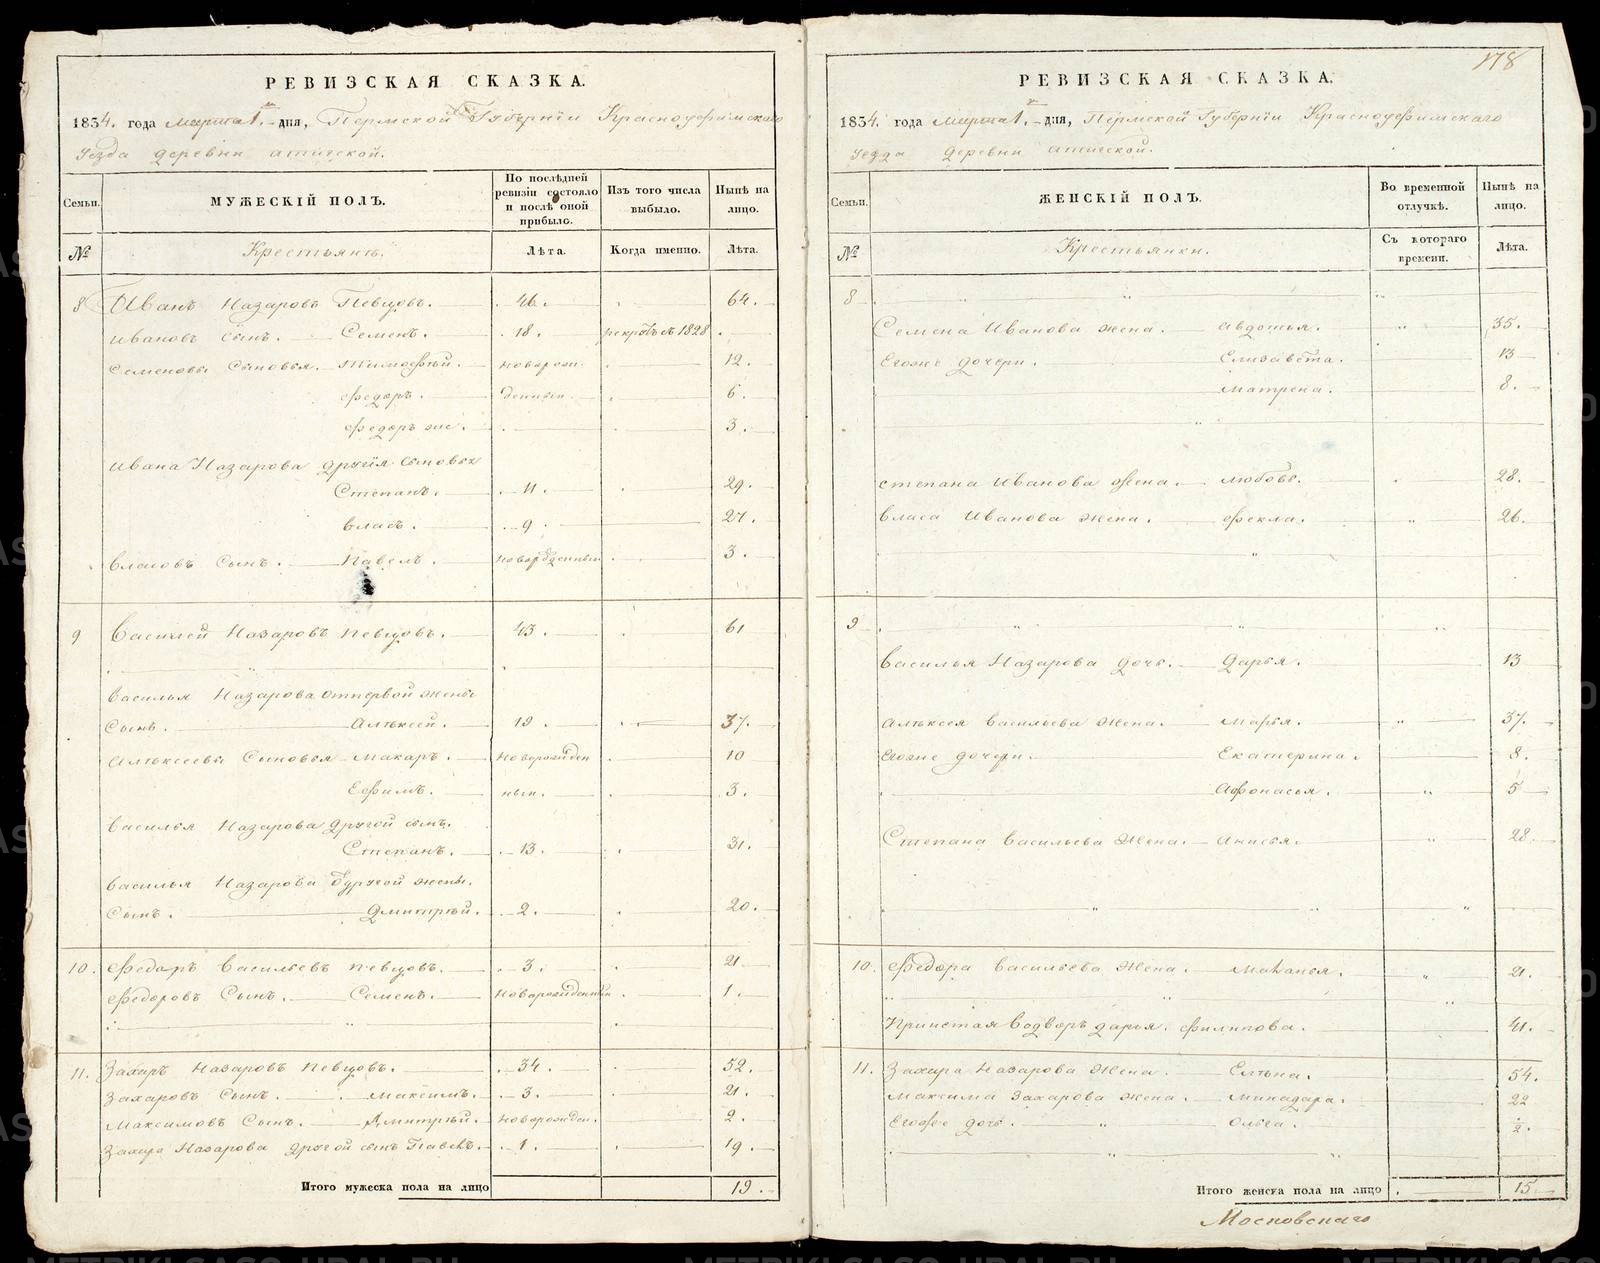 РЕВИЗСКАЯ СКАЗКА.
1834. года марта 1. дня, Пермской Губернiи Красноуфимскаго
уезда деревни атигской.
Семьи.
МУЖЕСКIЙ ПОЛЪ.
По послѣдней ревизiи состояло и послѣ оной прибыло.
Изъ того числа выбыло.
Нынѣ на лицо.
№
Крестьянъ.
Лѣта.
Когда именно.
Лѣта.
8 Иванъ Назаровъ Певцовъ. 46. 64.
Ивановъ сынъ. Семенъ. 18. рекрутъ въ 1828.
Семеновы Сыновья. Тимофѣй. новорож- 12.
Федоръ. денныи 6.
Федоръ же. 3.
Ивана Назарова другiя сыновья
Степанъ. 11. 29.
Власъ. 9. 27.
Власовъ Сынъ. Павелъ. новорожденный 3.
9 Василей Назаровъ Певцовъ. 43. 61
Василья Назарова отпервой жены
Сынъ. Алѣксей. 19. 37.
Алѣксеевы Сыновья Макаръ. Новорожден 10
Ефимъ. ныи. 3.
Василья Назарова другой сынъ.
Степанъ. 13. 31.
Василья Назарова Отдругой жены.
Сынъ. Дмитрѣй. 2. 20.
10. Федоръ Васильевъ Певцовъ. 3. 21
Федоровъ Сынъ. Семенъ. Новорожденный 1.
11. Захаръ Назаровъ Певцовъ. 34. 52.
Захаровъ Сынъ. Максимъ. 3. 21.
Максимовъ Сынъ. Дмитрѣй. Новорожден. 2.
Захара Назарова другой сынъ Павелъ. 1. 19.
Итого мужеска пола на лицо 19.
178
РЕВИЗСКАЯ СКАЗКА.
1834. года марта 1. дня, Пермской Губернiи Красноуфимскаго
уезда деревни атигской.
Семьи.
ЖЕНСКIЙ ПОЛЪ.
Во временной отлучкѣ.
Нынѣ на лицо.
№
Крестьянки.
Съ котораго времени.
Лѣта.
8
Семена Иванова жена. Авдотья. 35.
Егоже дочери. Елизавета. 13
Матрена. 8.
Степана Иванова жена. любовь. 28.
Власа Иванова жена. Фекла. 26.
9
Василья Назарова дочь. Дарья. 13
Алѣксея Васильева жена. Марья. 37.
Егоже дочери. Екатерина. 8.
Афонасья. 5
Степана Васильева жена. Анисья. 28.
10. Федора Васильева жена. Маланья. 21.
Принятая водворъ дарья. Филипова. 41.
11. Захара Назарова жена. Елѣна. 54.
Максима Захарова жена. Минадора. 22
Егоже дочь. Ольга. ½.
Итого женска пола на лицо 15
Московскаго